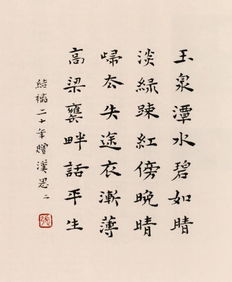 玉泉潭水碧如晴
淡綠踈紅傍晚晴
歸太失途衣漸薄
高梁甕畔話平生
結褵二十年贈漢思二